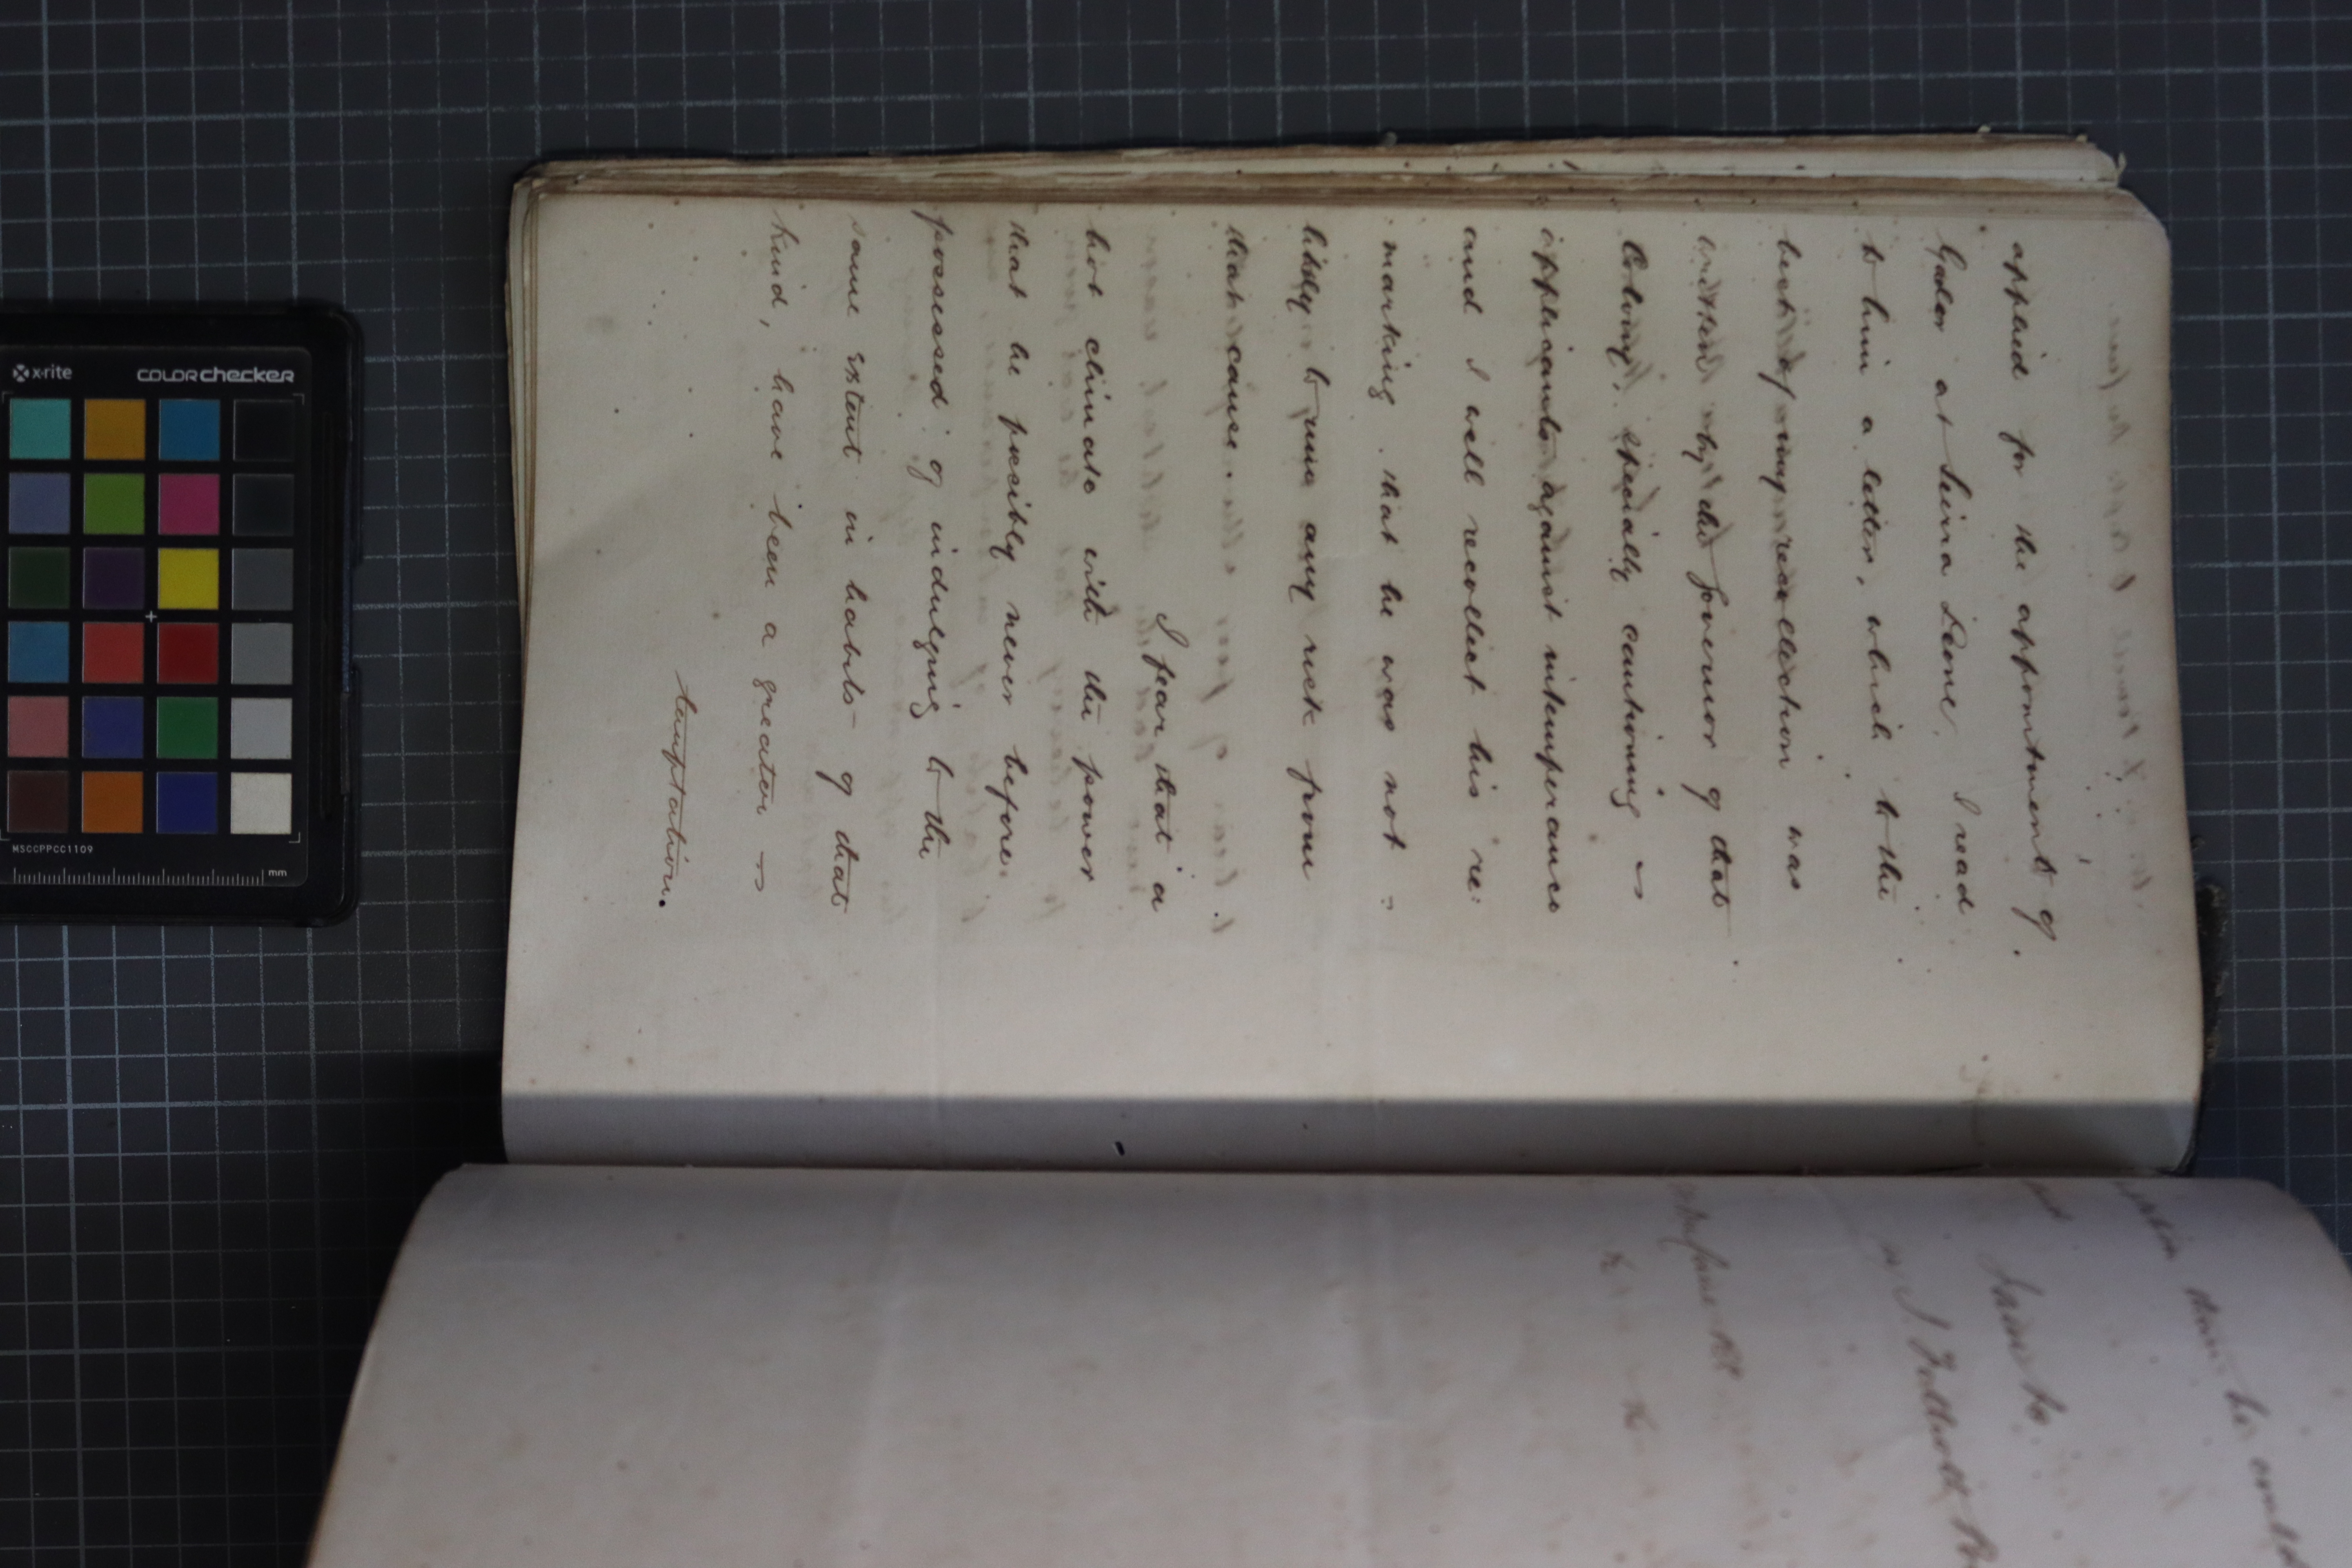 applied for the appointment of
Gaoler at Seirra Leone, I read
to him a letter, which to the
best of my recollection was
written by the Governor of that
Colony, specially cautioning
applicants against intemperance
and I well recollect his re:
marking that he was not =
likely to run any risk from
that cause.
I fear that in a
hot climate with the power
that he possibly never before
possessed of indulging to the
same extent in habits of that
kind, have been a greater
temptation.
x-rite
colorchecker
MSCCPPCC1109
mm